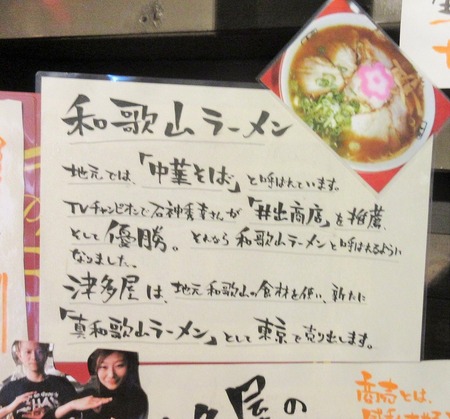 和歌山ラーメン
地元では、「中華そば」と呼ばれています。
TVチャンピオンで石神秀幸さんが「井出商店」を推薦
として優勝。それから和歌山ラーメンと呼ばれるように
なりました。
津多屋は、地元和歌山の食材を使い、新たに
「真和歌山ラーメン」として東京で売り出します。
屋の
商売とは、